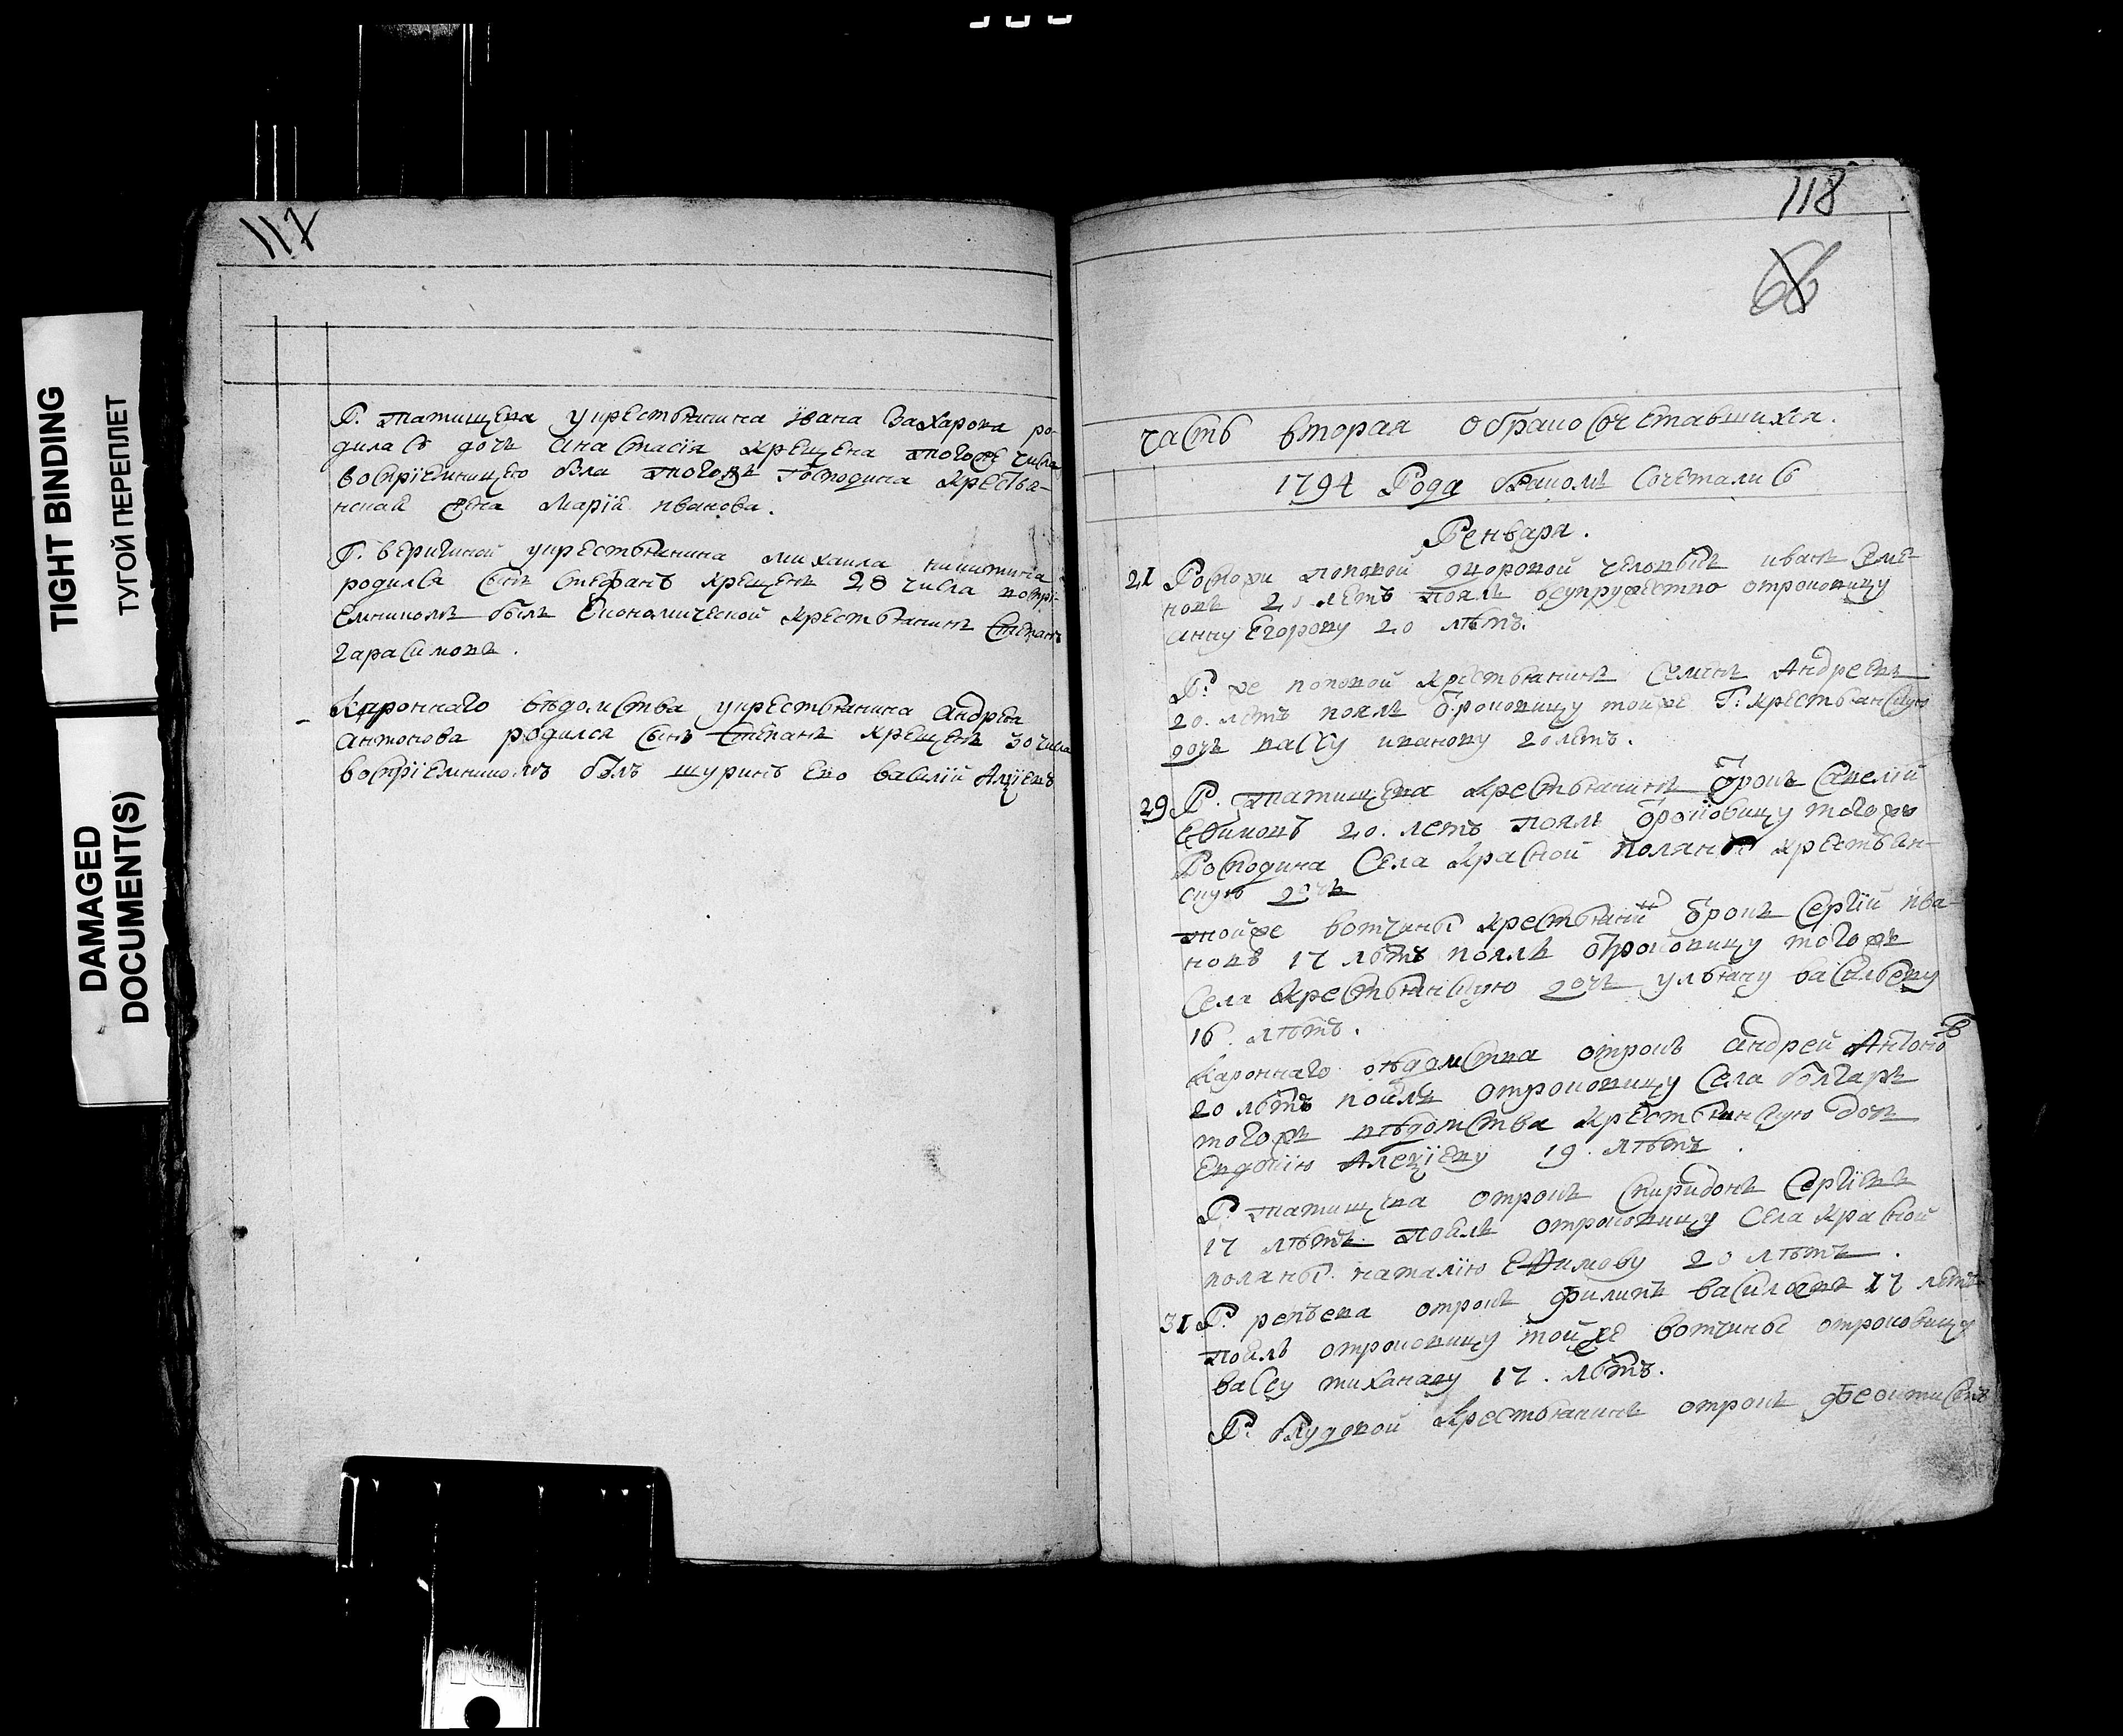 117
Г. Татищева у крестьянина ивана Захарова ро-
дилась дочь анастасїя крещена тогоже числа
воспрїемницею бла тогожъ Господина крестья-
нская жена Марїя иванова.
Г. веригиной у крестьянина михаила никитина
родился сынъ стефанъ крещенъ 28 числа воспрї-
емникомъ былъ Економической крестьянинъ Степанъ
гарасимовъ.
Короннаго вѣдомства у крестьянина андрея
антонова родился сынъ Степанъ крещенъ 30 числа
воспрїемникомъ былъ шуринъ ево василїй Алѯїевъ
118
66
часть вторая о бракосочетавшихся.
1794 Года бракомъ сочетались
Генваря.
21 Госпожи поповой дворовой человѣкъ иванъ семе-
новъ 20 летъ поялъ в супружество отроковицу
анну Егорову 20 лѣтъ.
Г. же поповой крестьянинъ Семенъ Андреевъ
20. летъ поялъ отроковицу тойже Г. крестьянскую
дочь вассу иванову 20 летъ.
29 Г. Татищева крестьянинъ отрокъ Савелїй
Ефимовъ 20. летъ поялъ отроковицу тогожъ
Господина Села красной поляны крестьян-
скую дочь
тойже вотчины крестьянинъ отрокъ Сергїй ива-
новъ 17 лѣтъ поялъ отроковицу тогожъ
Села крестьянскую дочь ульяну васильеву
16 лѣтъ.
Короннаго вѣдомства отрокъ андрей Антоновъ
20 лѣтъ поялъ отроковицу Села болгаръ
тогожъ вѣдомства крестьянскую дочь
Евдокїю Алеѯїеву 19. лѣтъ.
Г. татищева отрокъ Спиридонъ Сергїевъ
17 лѣтъ поялъ отроковицу Села красной
поляны наталїю Ефимову 20 лѣтъ.
31 Г. репьева отрокъ филипъ васильевъ 17 лѣтъ
поялъ отроковицу тойже вотчины отроковицу
вассу 17. лѣтъ.
Г. крестьянинъ отрокъ феоктистъ
TIGHT BINDING
ТУГОЙ ПЕРЕПЛЕТ
DAMAGED
DOCUMENT(S)